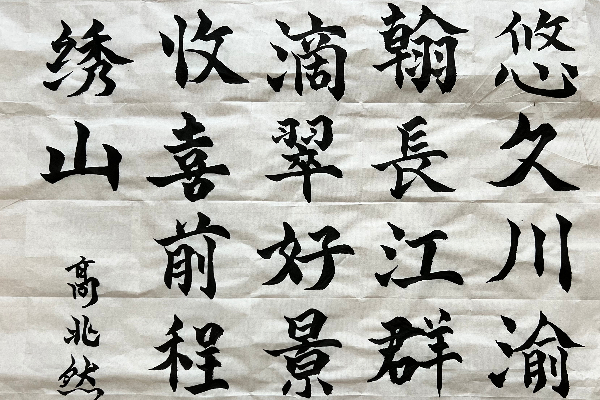 悠久川渝
翰長江群
滴翠好景
收喜前程
绣山
高兆然